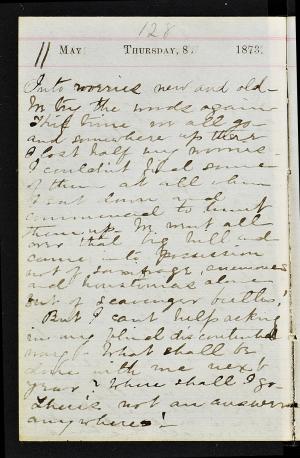 128
11 MAY THURSDAY, 8. 1873.
Into worries new and old –
the woods again
This time we all go
and somewhere up there
I lost half my worries
I couldn't find some
of them at all when
I sat down and
commenced to hunt
them up. We went all
over that big hill and
came into possession
not of saxifrage, anemones
and houstonias alone
but of scavenger beetles,
But I can't help asking
in my blind discontented
way. What shall be
done with me next
year? Where shall I go
There's not an answer
anywhere! –